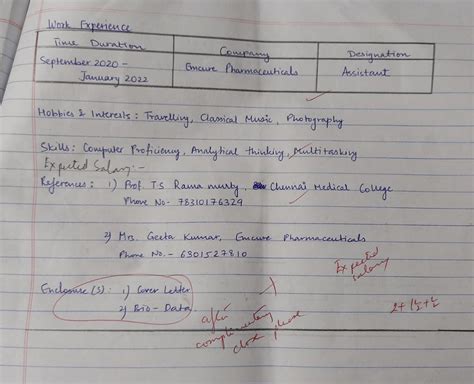 Work Experience
Time Duration Company Designation
September 2020 - January 2022 Emcure Pharmaceuticals Assistant
Hobbies & Interests : Travelling, Classical Music, Photography
Skills: Computer Proficiency, Analytical thinking, Multitasking
Expected Salary :-
References : 1) Prof. TS Rama murty, Chennai Medical College
Phone No- 78310176329
2) Mrs. Geeta Kumar, Emcure Pharmaceuticals
Phone No. - 6301527810
Expected salary
Enclosure (s) : 1) Cover Letter
2) Bio - Data
after complimentary close please
2+1½+½